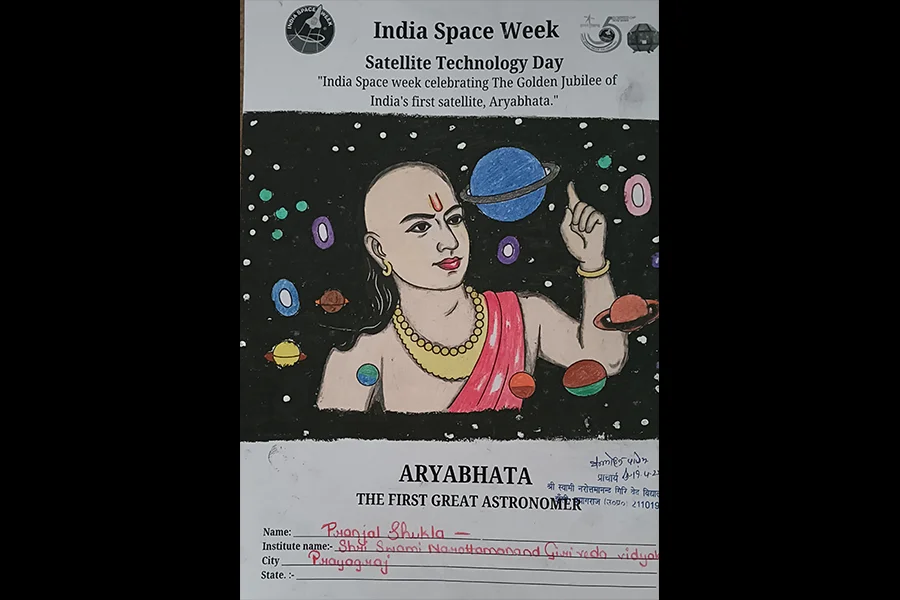 INDIA SPACE WEEK
India Space Week
Satellite Technology Day
"India Space week celebrating The Golden Jubilee of
India's first satellite, Aryabhata."
ARYABHATA
THE FIRST GREAT ASTRONOMER
प्राचार्य
श्री स्वामी नरोत्तमानन्द गिरि वेद विद्या
(उ०प्र०) 211019
Name: Pranjal Shukla —
Institute name:- Shri Swami Narottamanand Giri veda vidyal
City Prayagraj
State. :-